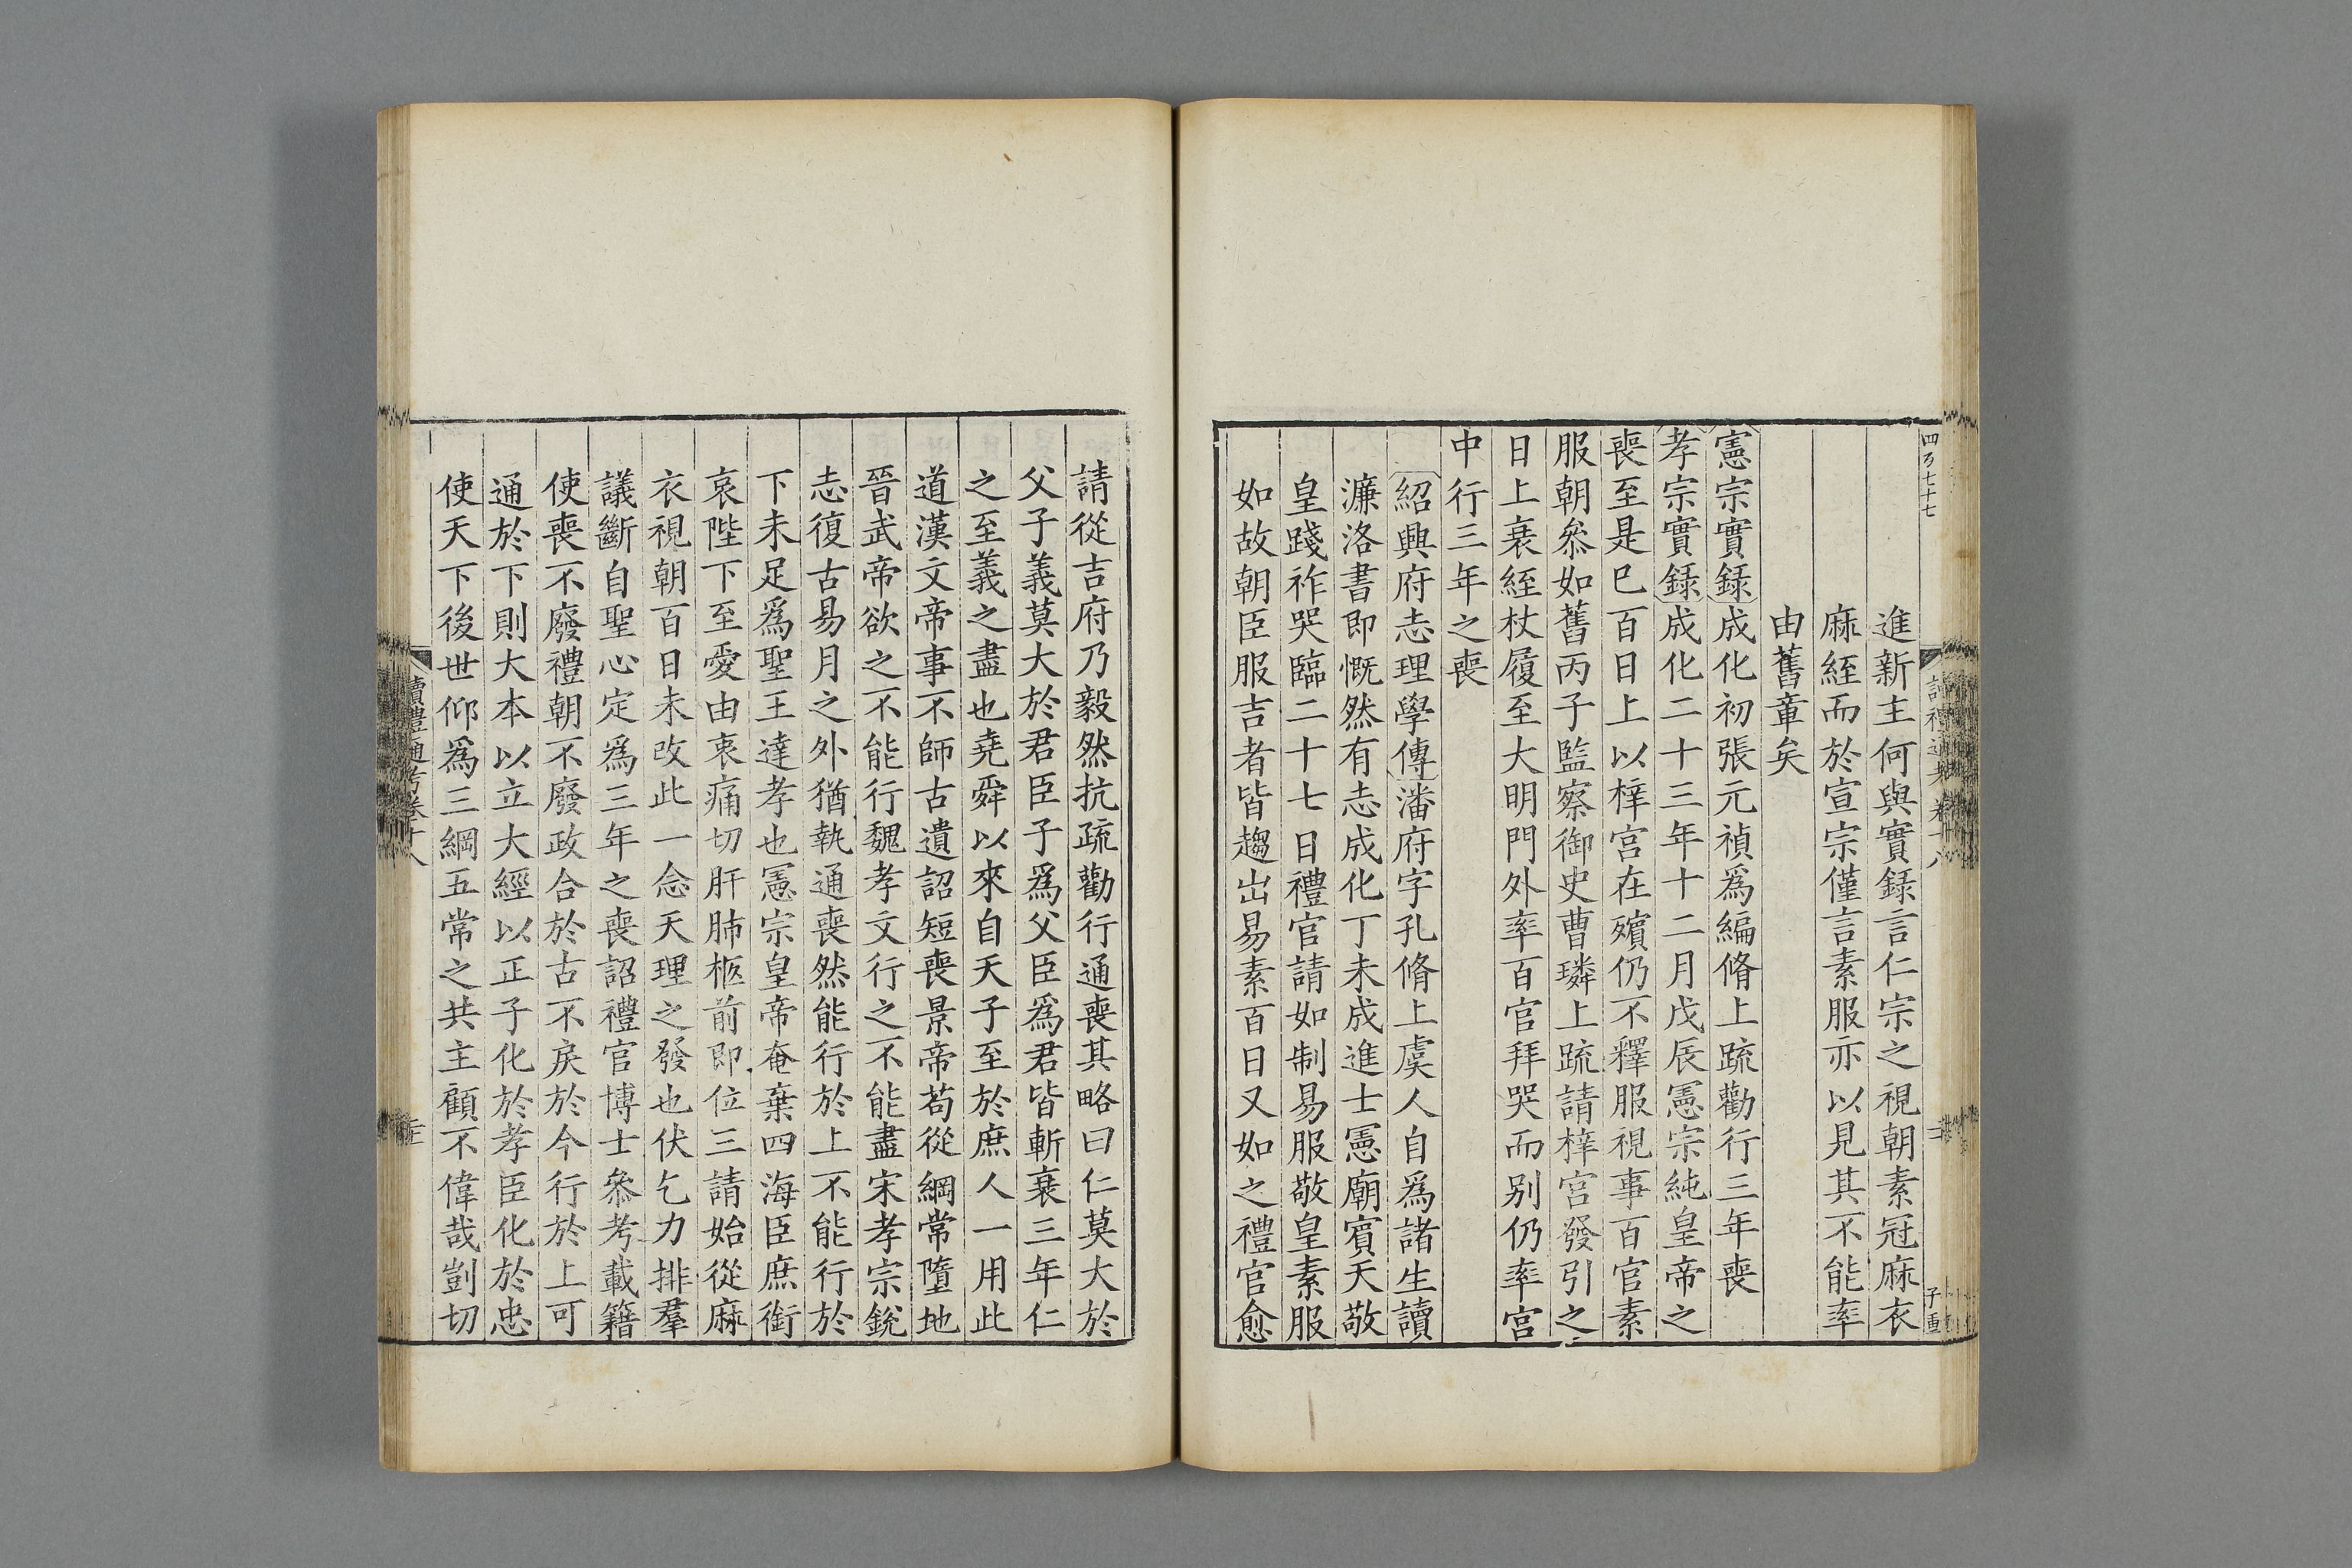 進新主何與實錄言仁宗之視朝素冠麻衣
麻絰而於宣宗僅言素服亦以見其不能率
由舊章矣
憲宗實錄成化初張元禎爲編脩上疏勸行三年喪
孝宗實錄成化二十三年十二月戊辰憲宗純皇帝之
喪至是巳百日上以梓宮在殯仍不釋服視事百官素
服朝叅如舊丙子監察御史曹璘上疏請梓宮發引之
日上衰絰杖履至大明門外率百官拜哭而别仍率宮
中行三年之喪
紹興府志理學傳潘府字孔脩上虞人自爲諸生讀
濂洛書即慨然有志成化丁未成進士憲廟賓天敬
皇踐祚哭臨二十七日禮官請如制易服敬皇素服
如故朝臣服吉者皆趨出易素百日又如之禮官愈
請從吉府乃毅然抗疏勸行通喪其略曰仁莫大於
父子義莫大於君臣子爲父臣爲君皆斬衰三年仁
之至義之盡也堯舜以來自天子至於庶人一用此
道漢文帝事不師古遺詔短喪景帝苟從綱常墮地
晉武帝欲之不能行魏孝文行之不能盡宋孝宗銳
志復古易月之外猶執通喪然能行於上不能行於
下未足爲聖王達孝也憲宗皇帝奄棄四海臣庶銜
哀陛下至愛由衷痛切肝肺柩前即位三請始從麻
衣視朝百日未改此一念天理之發也伏乞力排羣
議斷自聖心定爲三年之喪詔禮官博士叅考載籍
使喪不廢禮朝不廢政合於古不戾於今行於上可
通於下則大本以立大經以正子化於孝臣化於忠
使天下後世仰爲三綱五常之共主顧不偉哉剴切
讀禮通考卷十八